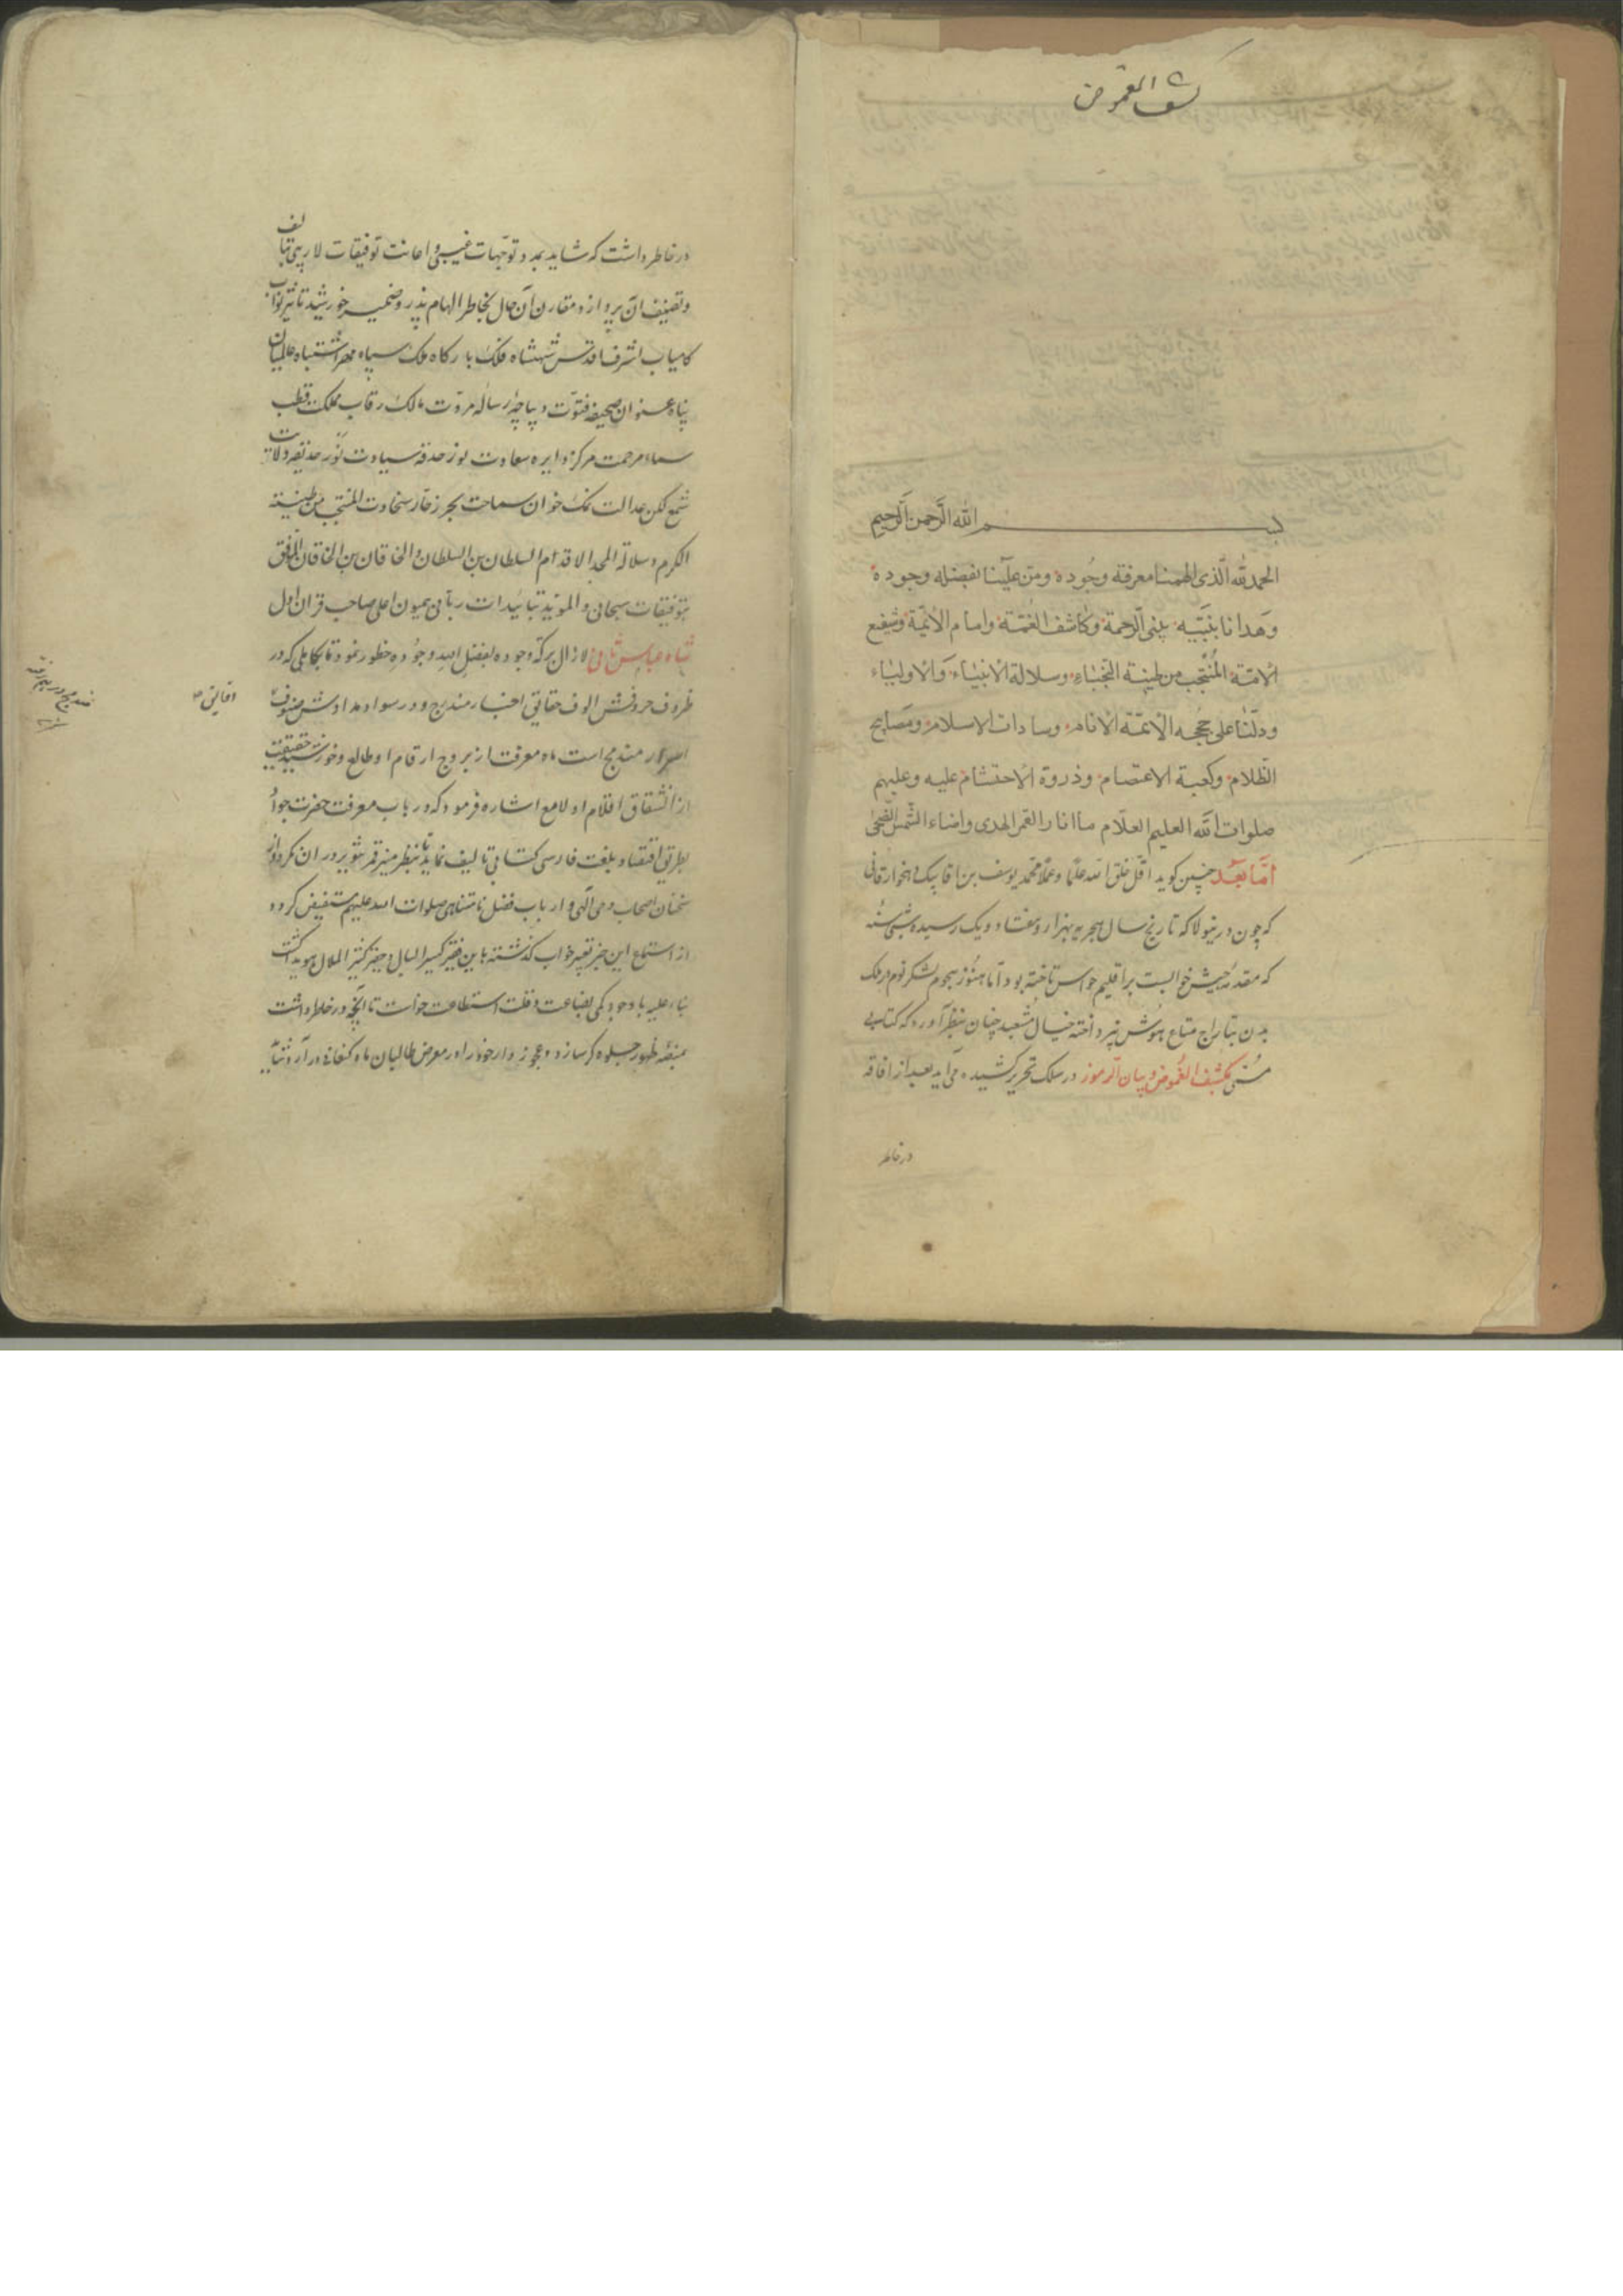 كشف الغموض
بسم الله الرحمن الرحیم
الحمد لله الّذی الهمنا معرفة وجُوده ومنّ علینا بفضله وجوده
وهدانا بنبیّه نبیّ الرحمة وکاشف الغمّة وامام الائمّة وشفیع
الامّة المُنتجب من طینة النجباء وسلالة الانبیاء والاولیاء
ودلّنا علی حججه الائمّة الانام وسادات الاسلام ومصابیح
الظّلام وکعبة الاعتصام وذروة الاحتشام علیه وعلیهم
صلوات الله العلیم العلّام ما انار القمر الهدی واضاء الشمس الضّحی
امّا بعد چنین کوید اقل خلق الله علمًا وعملًا محمد یوسف بن اقا بیک دهخوارقانی
که چون درینولا که تاریخ سال هجریه بهزار و هفتاد ویک رسیده شبی
که مقدمهٔ جیش خواب بر اقلیم حواس تاخته بود امّا هنُوز هجوم لشکر نوم در ملک
بدن بتاراج متاع هوش نپرداخته خیال مُشعبد چنان بنظر آورد که کتابی
مُسمّی بکشف الغُموض وبیان الرموز در سلک تحریر کشیده می آید بعد از افاقه
در خاطر
در خاطر داشت که شاید بمدد توجّهات غیبی و اعانت توفیقات لاریبی بتالیف
وتصنیف ان پردازد مقارن آن حال بخاطر الهام پذیر وضمیر خورشید تاثیر نواب
کامیاب اشرف اقدس شهنشاه فلک بارکاه ملک سپاه مهر اشتباه عالمیان
پناه عنوان صحیفه فتوّت دیباچهٔ رسالهٔ مروّت مالک رقاب مملکت قطب
سماء مرحمت مرکز دایره سعادت نور حدقه سیادت نَور حدیقه ولایت
شمع لکن عدالت نمک خوان سماحت بحر زخار سخاوت المنتجب من طینة
الکرم وسلالة المجد الاقدم السلطان بن السلطان والخاقان بن الخاقان الموفق
بتوفیقات سبحانی والمؤید بتاییدات ربانی همیون اعلی صاحب قران اول
شاه عباس ثانی لازال برکة وجوده بفضل الله وجُوده خطور نمود تا بکاملی که در
ظروف حروفش الوف حقایق اخبار مندرج ودر سواد مدادش صنوف دقایق
اسرار مندمج است ماه معرفت از بروج ارقام او طالع وخورشید حقیقت
از انشقاق اقلام او لامع اشاره فرمود که در باب معرفت حضرت جواد
بطریق اقتصاد بلغت فارسی کتابی تالیف نماید تا بنظر منیر قمر تنویر در ان نکرد واز
سخنان اصحاب وحی آلهی و ارباب فضل نامتناهی صلوات الله علیهم مستفیض کردد
از استماع این خبر تعبیر خواب کذشته باین فقیر کسیر البال وحقیر کثیر الملال هویدا کشت
بناء علیه با وجود کمی بضاعت وقلت استطاعت خواست تا آنچه در خاطر داشت
بمنصّه ظهور جلوه کر سازد وعجوزه وار خود را در معرض طالبان ماه کنعانی در آرد